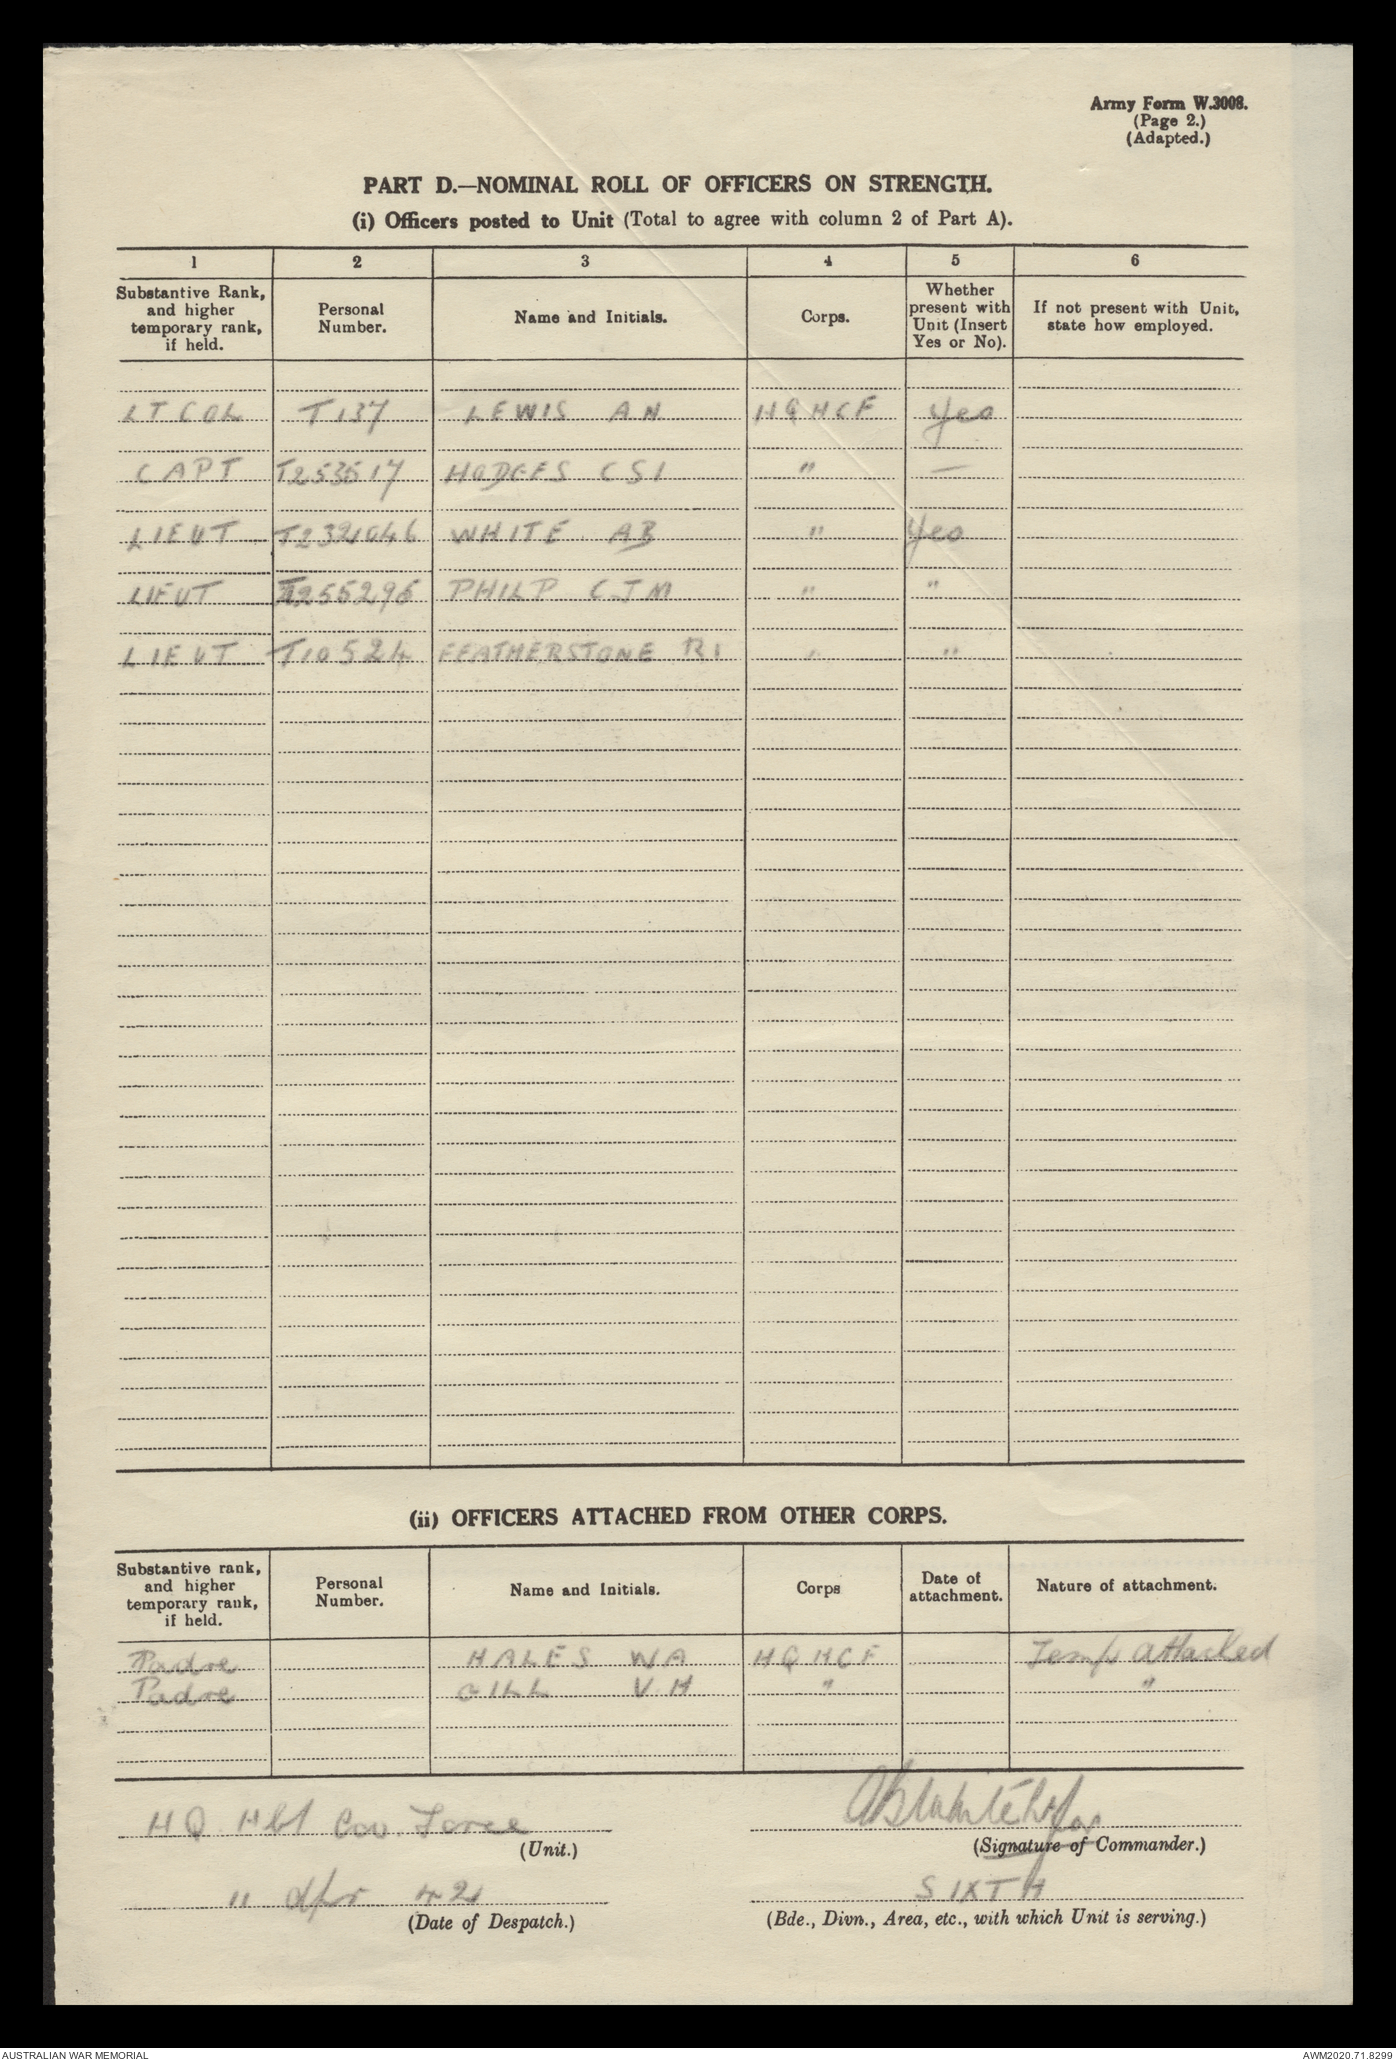 Army Form W.3008.
(Page 2.)
(Adapted.)
PART D.—NOMINAL ROLL OF OFFICERS ON STRENGTH.
(i) Officers posted to Unit (Total to agree with column 2 of Part A).
1 2 3 4 5 6
Substantive Rank, and higher temporary rank, if held. Personal Number. Name and Initials. Corps. Whether present with Unit (Insert Yes or No). If not present with Unit, state how employed.
LT COL T137 LEWIS AN HQ HCF Yes
CAPT HODGES CSI " —
LIEUT WHITE AB " Yes
LIEUT PHILP CJM " "
LIEUT T10524 FEATHERSTONE RI " "
(ii) OFFICERS ATTACHED FROM OTHER CORPS.
Substantive rank, and higher temporary rank, if held. Personal Number. Name and Initials. Corps Date of attachment. Nature of attachment.
Padre HALES WA HQ HCF Temp attached
Padre GILL VH " "
HQ Hbt Cov. Force
(Unit.)
(Signature of Commander.)
11 Apr 42
(Date of Despatch.)
SIXTH
(Bde., Divn., Area, etc., with which Unit is serving.)
AUSTRALIAN WAR MEMORIAL
AWM2020.71.8299